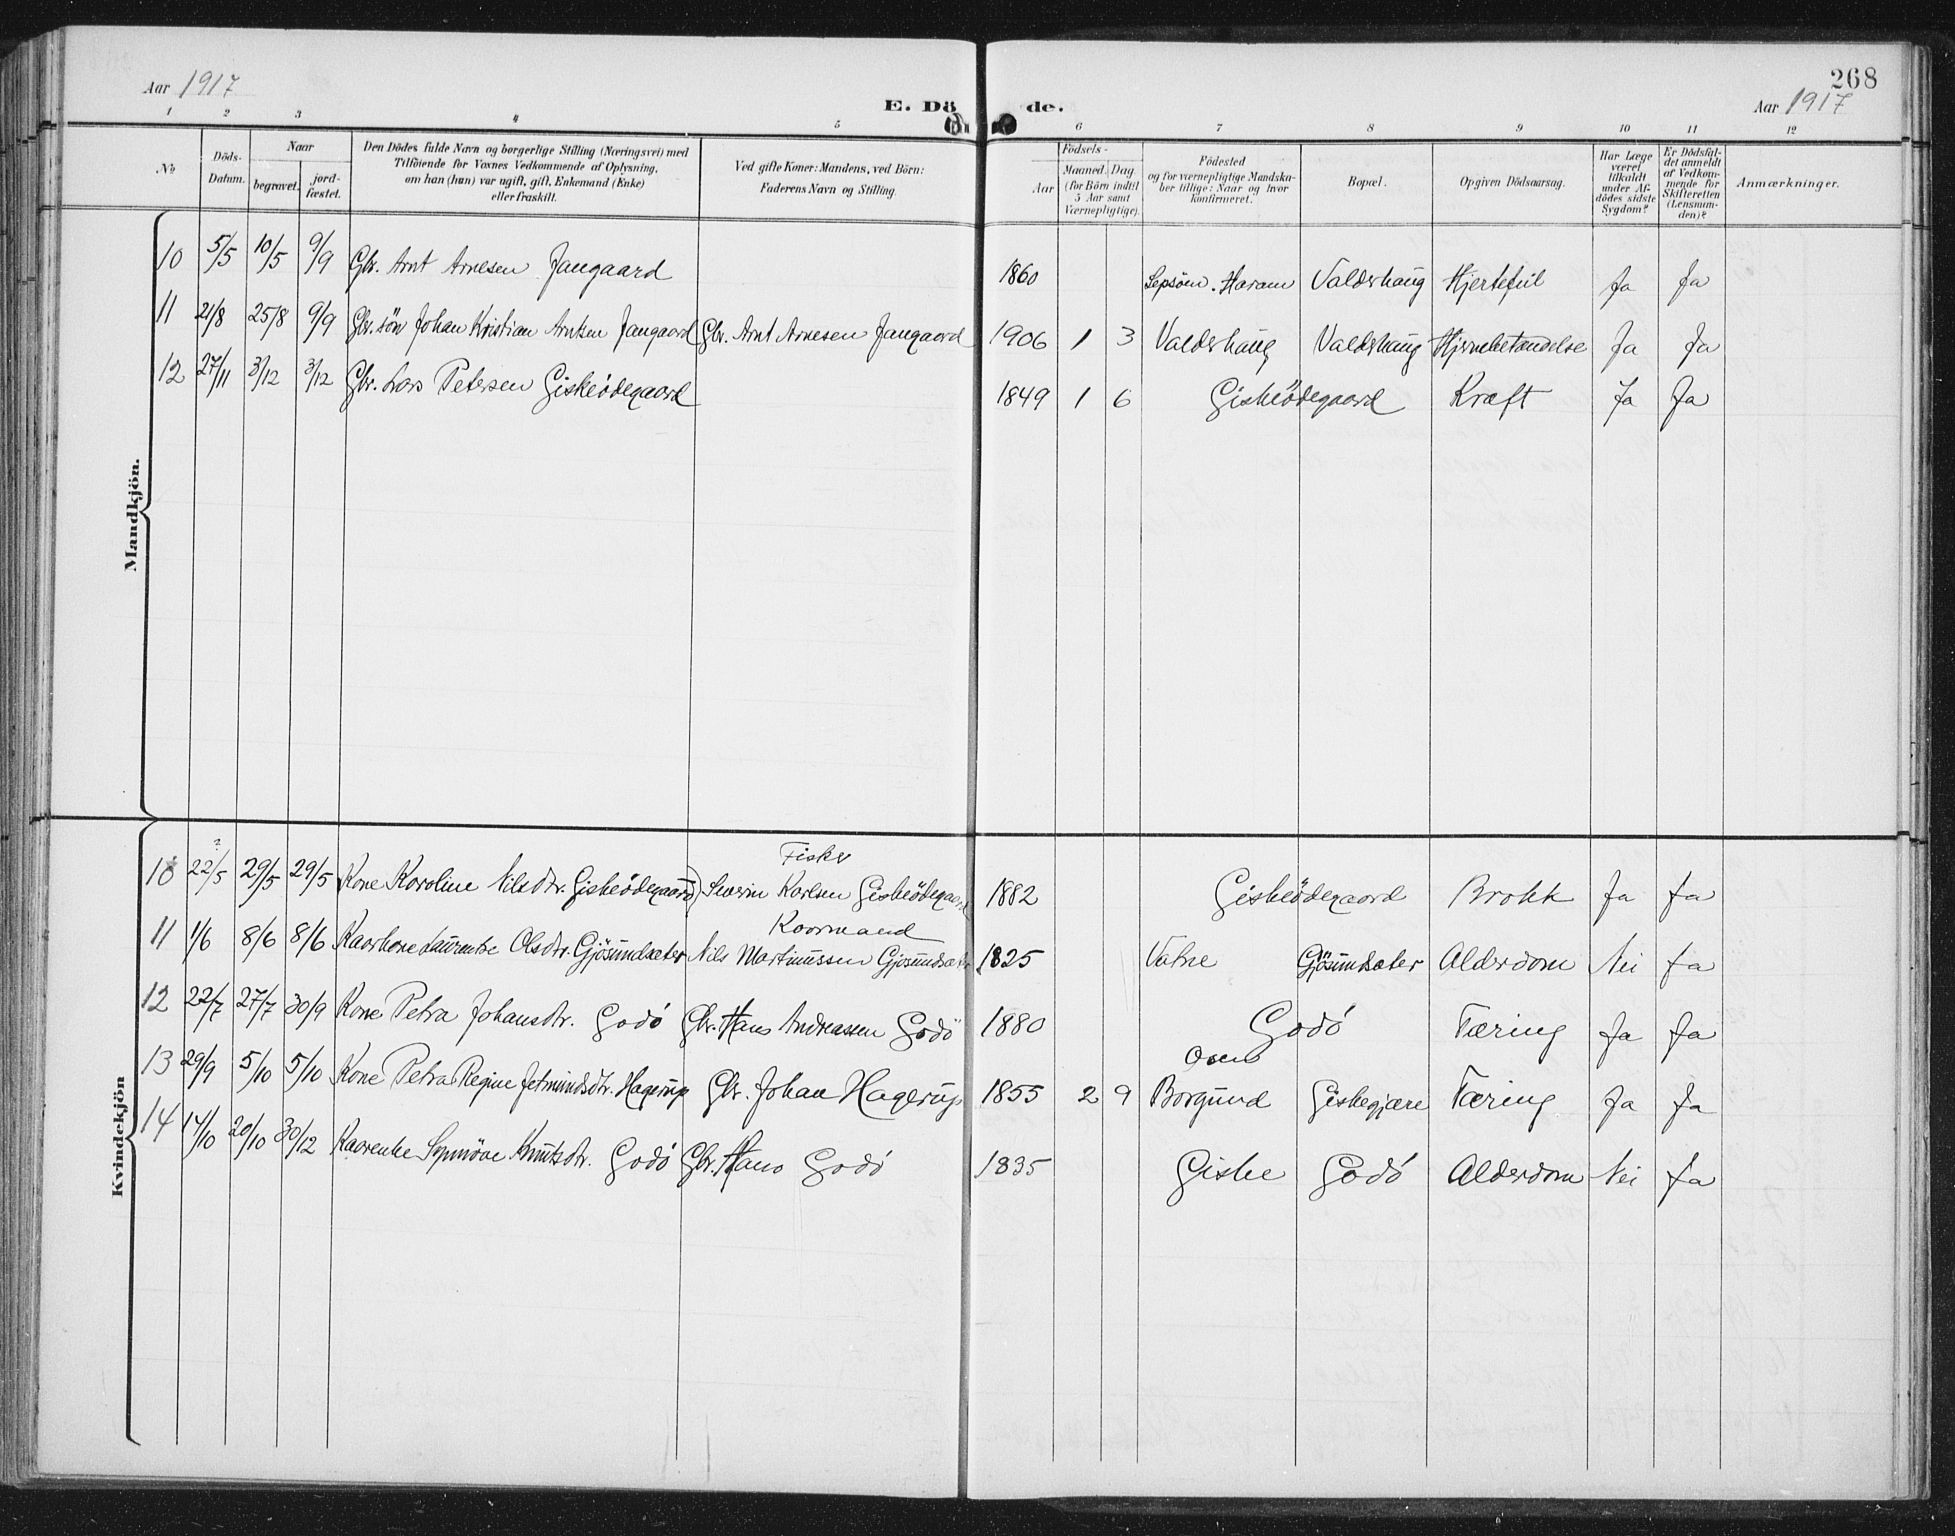 268
Aar 1917
E. Döde.
Aar 1917
1 2 3 4 5 6 7 8 9 10 11 12
No
Döds-Datum.
Naar
begravet.
jord-fæstet.
Den Dödes fulde Navn og borgerlige Stilling (Næringsvei) med
Tilföiende for Voxnes Vedkommende af Oplysning,
om han (hun) var ugift, gift, Enkemand (Enke)
eller fraskilt.
Ved gifte Koner: Mandens, ved Börn:
Faderens Navn og Stilling.
Födsels-
Aar
Maaned. Dag
(for Börn indtil
5 Aar samt
Værnepligtige).
Födested
og for værnepligtige Mandska-
ber tillige: Naar og hvor
konfirmeret.
Bopæl.
Opgiven Dödsaarsag.
Har Læge
været
tilkaldt
under Af-
dödes sidste
Sygdom?
Er Dödsfal-
det anmeldt
af Vedkom-
mende for
Skifteretten
(Lensman-
den)?
Anmærkninger.
Mandkjön.
10 5/5 10/5 9/9 Gbr. Arnt Arnesen Jangaard 1860 Lepsöen. Haram Valderhaug Hjertefeil Ja Ja
11 21/8 25/8 9/9 Gbr. sön Johan Kristian Arntsen Jangaard Gbr. Arnt Arnesen Jangaard 1906 1 3 Valderhaug Valderhaug Hjernebetændelse Ja Ja
12 27/11 3/12 3/12 Gbr. Lars Petersen Giskeödegaard 1849 1 6 Giskeödegaard Kræft Ja Ja
Kvindekjön
?
Fisker
10 22/5 29/5 29/5 Kone Karoline Nilsdtr. Giskeödegaard Severin Karlsen Giskeödegaard 1882 Giskeödegaard Brokk Ja Ja
Kaarmand
11 1/6 8/6 8/6 Kaarkone Laurentse Olsdtr. Gjösundsæter Nils Martinussen Gjösundsæter 1825 Vatne Gjösundsæter Alderdom Nei Ja
12 22/7 27/7 30/9 Kone Petra Johansdtr. Godö Gbr. Hans Andreassen Godö 1880 Godö Tæring Ja Ja
Osen
13 29/9 5/10 5/10 Kone Petra Regine Jetmundsdtr. Hagerup Gbr. Johan Hagerup 1855 2 9 Borgund Giskegjære Tæring Ja Ja
14 14/10 20/10 30/12 Kaarenke Synnöve Knutsdtr. Godö Gbr. Hans Godö 1835 Giske Godö Alderdom Nei Ja